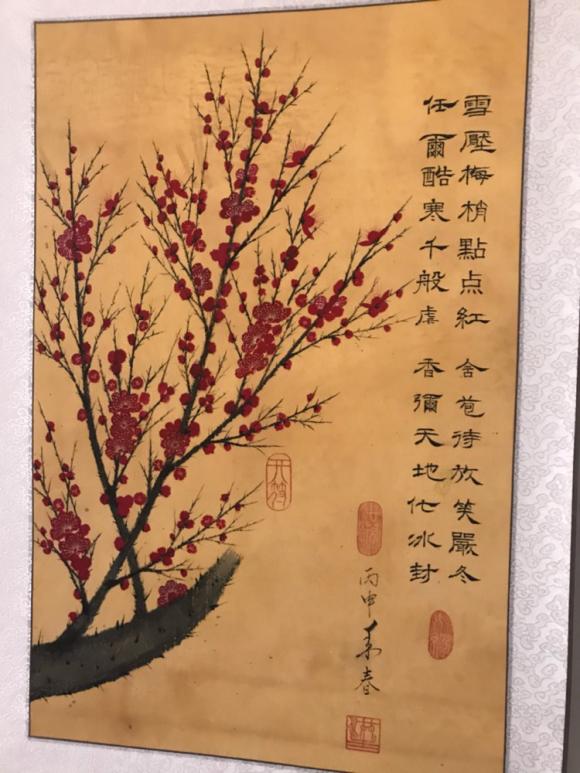 雪壓梅梢點点紅 含苞待放笑嚴冬
任爾酷寒千般虐 香彌天地化冰封
丙申 春